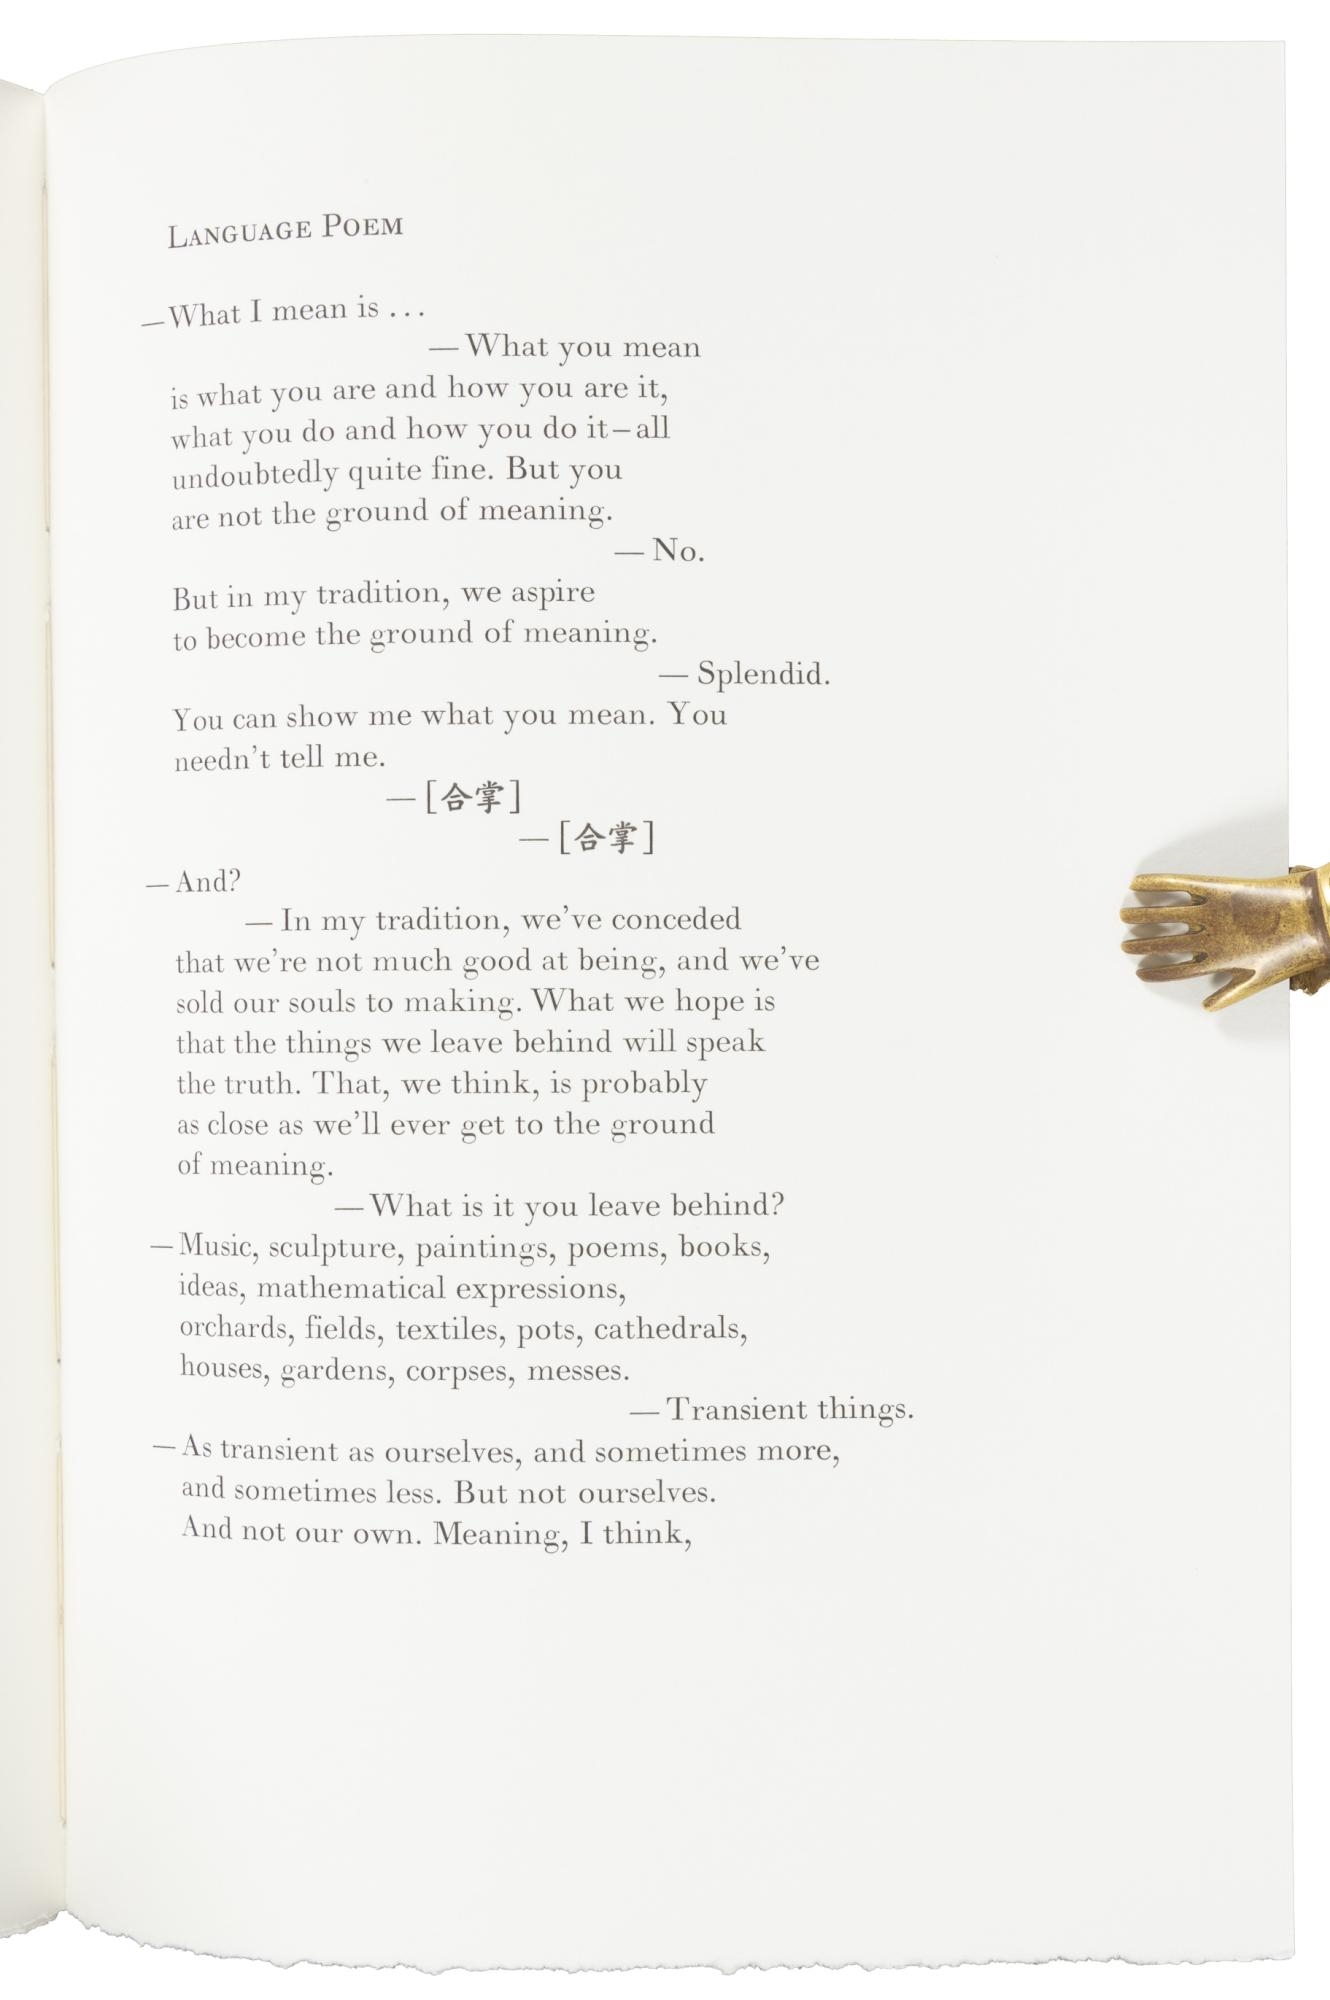 Language Poem
—What I mean is . . .
—What you mean
is what you are and how you are it,
what you do and how you do it–all
undoubtedly quite fine. But you
are not the ground of meaning.
— No.
But in my tradition, we aspire
to become the ground of meaning.
— Splendid.
You can show me what you mean. You
needn’t tell me.
— [合掌]
— [合掌]
— And?
— In my tradition, we’ve conceded
that we’re not much good at being, and we’ve
sold our souls to making. What we hope is
that the things we leave behind will speak
the truth. That, we think, is probably
as close as we’ll ever get to the ground
of meaning.
—What is it you leave behind?
—Music, sculpture, paintings, poems, books,
ideas, mathematical expressions,
orchards, fields, textiles, pots, cathedrals,
houses, gardens, corpses, messes.
—Transient things.
—As transient as ourselves, and sometimes more,
and sometimes less. But not ourselves.
And not our own. Meaning, I think,